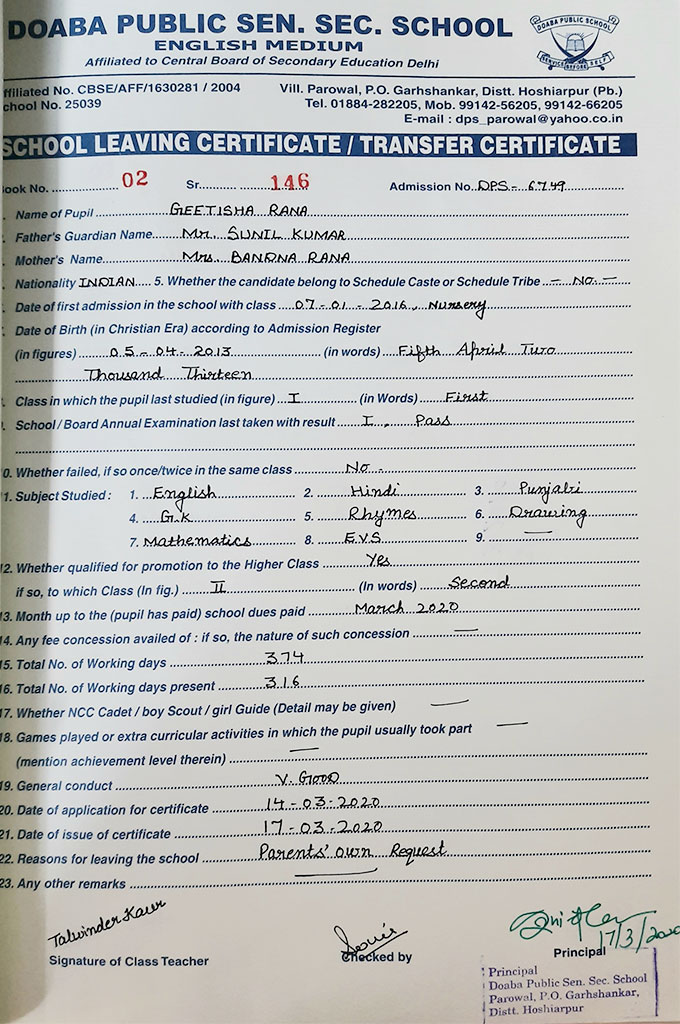 DOABA PUBLIC SEN. SEC. SCHOOL
ENGLISH MEDIUM
Affiliated to Central Board of Secondary Education Delhi
DOABA PUBLIC SCHOOL
SERVICE BEFORE SELF
ffiliated No. CBSE/AFF/1630281 / 2004
chool No. 25039
Vill. Parowal, P.O. Garhshankar, Distt. Hoshiarpur (Pb.)
Tel. 01884-282205, Mob. 99142-56205, 99142-66205
E-mail : dps_parowal@yahoo.co.in
SCHOOL LEAVING CERTIFICATE / TRANSFER CERTIFICATE
ook No. 02 Sr. 146 Admission No. DPS - 6749
Name of Pupil GEETISHA RANA
Father's Guardian Name Mr. SUNIL KUMAR
Mother's Name Mrs. BANDNA RANA
Nationality INDIAN 5. Whether the candidate belong to Schedule Caste or Schedule Tribe - No. -
Date of first admission in the school with class 07-01-2016, Nursery
Date of Birth (in Christian Era) according to Admission Register
(in figures) 05-04-2013 (in words) Fifth April Two
Thousand Thirteen
Class in which the pupil last studied (in figure) I (in Words) First
School / Board Annual Examination last taken with result I, Pass
0. Whether failed, if so once/twice in the same class No -
1. Subject Studied : 1. English 2. Hindi 3. Punjabi
4. G.K 5. Rhymes 6. Drawing
7. Mathematics 8. E.V.S 9. —
2. Whether qualified for promotion to the Higher Class Yes
if so, to which Class (In fig.) II (In words) Second
13. Month up to the (pupil has paid) school dues paid March 2020
14. Any fee concession availed of : if so, the nature of such concession —
15. Total No. of Working days 374
16. Total No. of Working days present 316
17. Whether NCC Cadet / boy Scout / girl Guide (Detail may be given) —
18. Games played or extra curricular activities in which the pupil usually took part —
(mention achievement level therein) —
19. General conduct V. GOOD
20. Date of application for certificate 14-03-2020
21. Date of issue of certificate 17-03-2020
22. Reasons for leaving the school Parents' own Request
23. Any other remarks —
Talwinder Kaur
17/3/2020
Signature of Class Teacher Checked by Principal
Principal
Doaba Public Sen. Sec. School
Parowal, P.O. Garhshankar,
Distt. Hoshiarpur